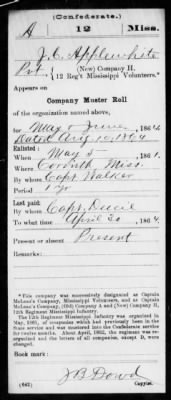 (Confederate.)
A 12 Miss.
J. C. Applewhite
Pvt., (New) Company H,
12 Reg't Mississippi Volunteers.*
Appears on
Company Muster Roll
of the organization named above,
for May & June, 1864.
Dated Aug 10, 1864
Enlisted:
When May 5, 1861.
Where Corinth Miss.
By whom Capt. Walker
Period 1 yr
Last paid:
By whom Capt.
To what time April 30, 1864.
Present or absent Present
*This company was successively designated as Captain
McLean's Company, Mississippi Volunteers, and as Captain
McLean's Company, (Old) Company A and (New) Company H,
12th Regiment Mississippi Infantry.
The 12th Regiment Mississippi Infantry was organized in
May, 1861, of companies which had previously been in the
State service and was mustered into the Confederate service
for twelve months. About April, 1862, the regiment was re-
organized and the letters of all companies, except D, were
changed.
Book mark:
J B Dowd
(642) Copyist.